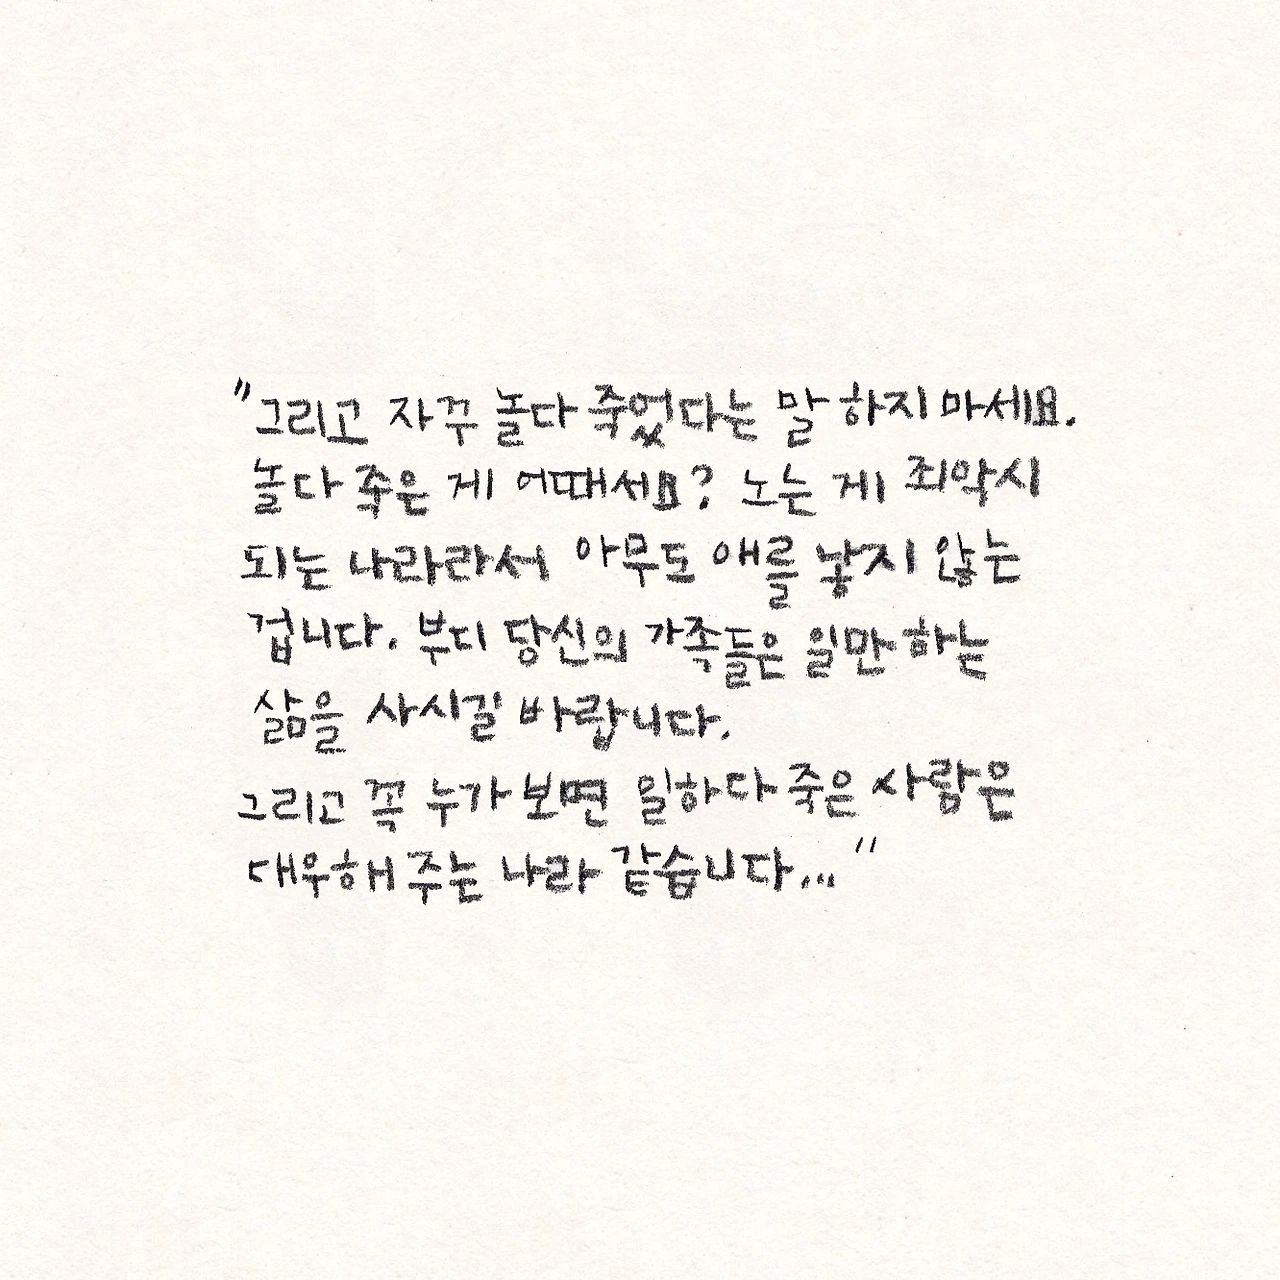 "그리고 자꾸 놀다 죽었다는 말 하지 마세요.
놀다 죽은 게 어때서요? 노는 게 죄악시
되는 나라라서 아무도 애를 낳지 않는
겁니다. 부디 당신의 가족들은 일만 하는
삶을 사시길 바랍니다.
그리고 꼭 누가 보면 일하다 죽은 사람은
대우해 주는 나라 같습니다..."